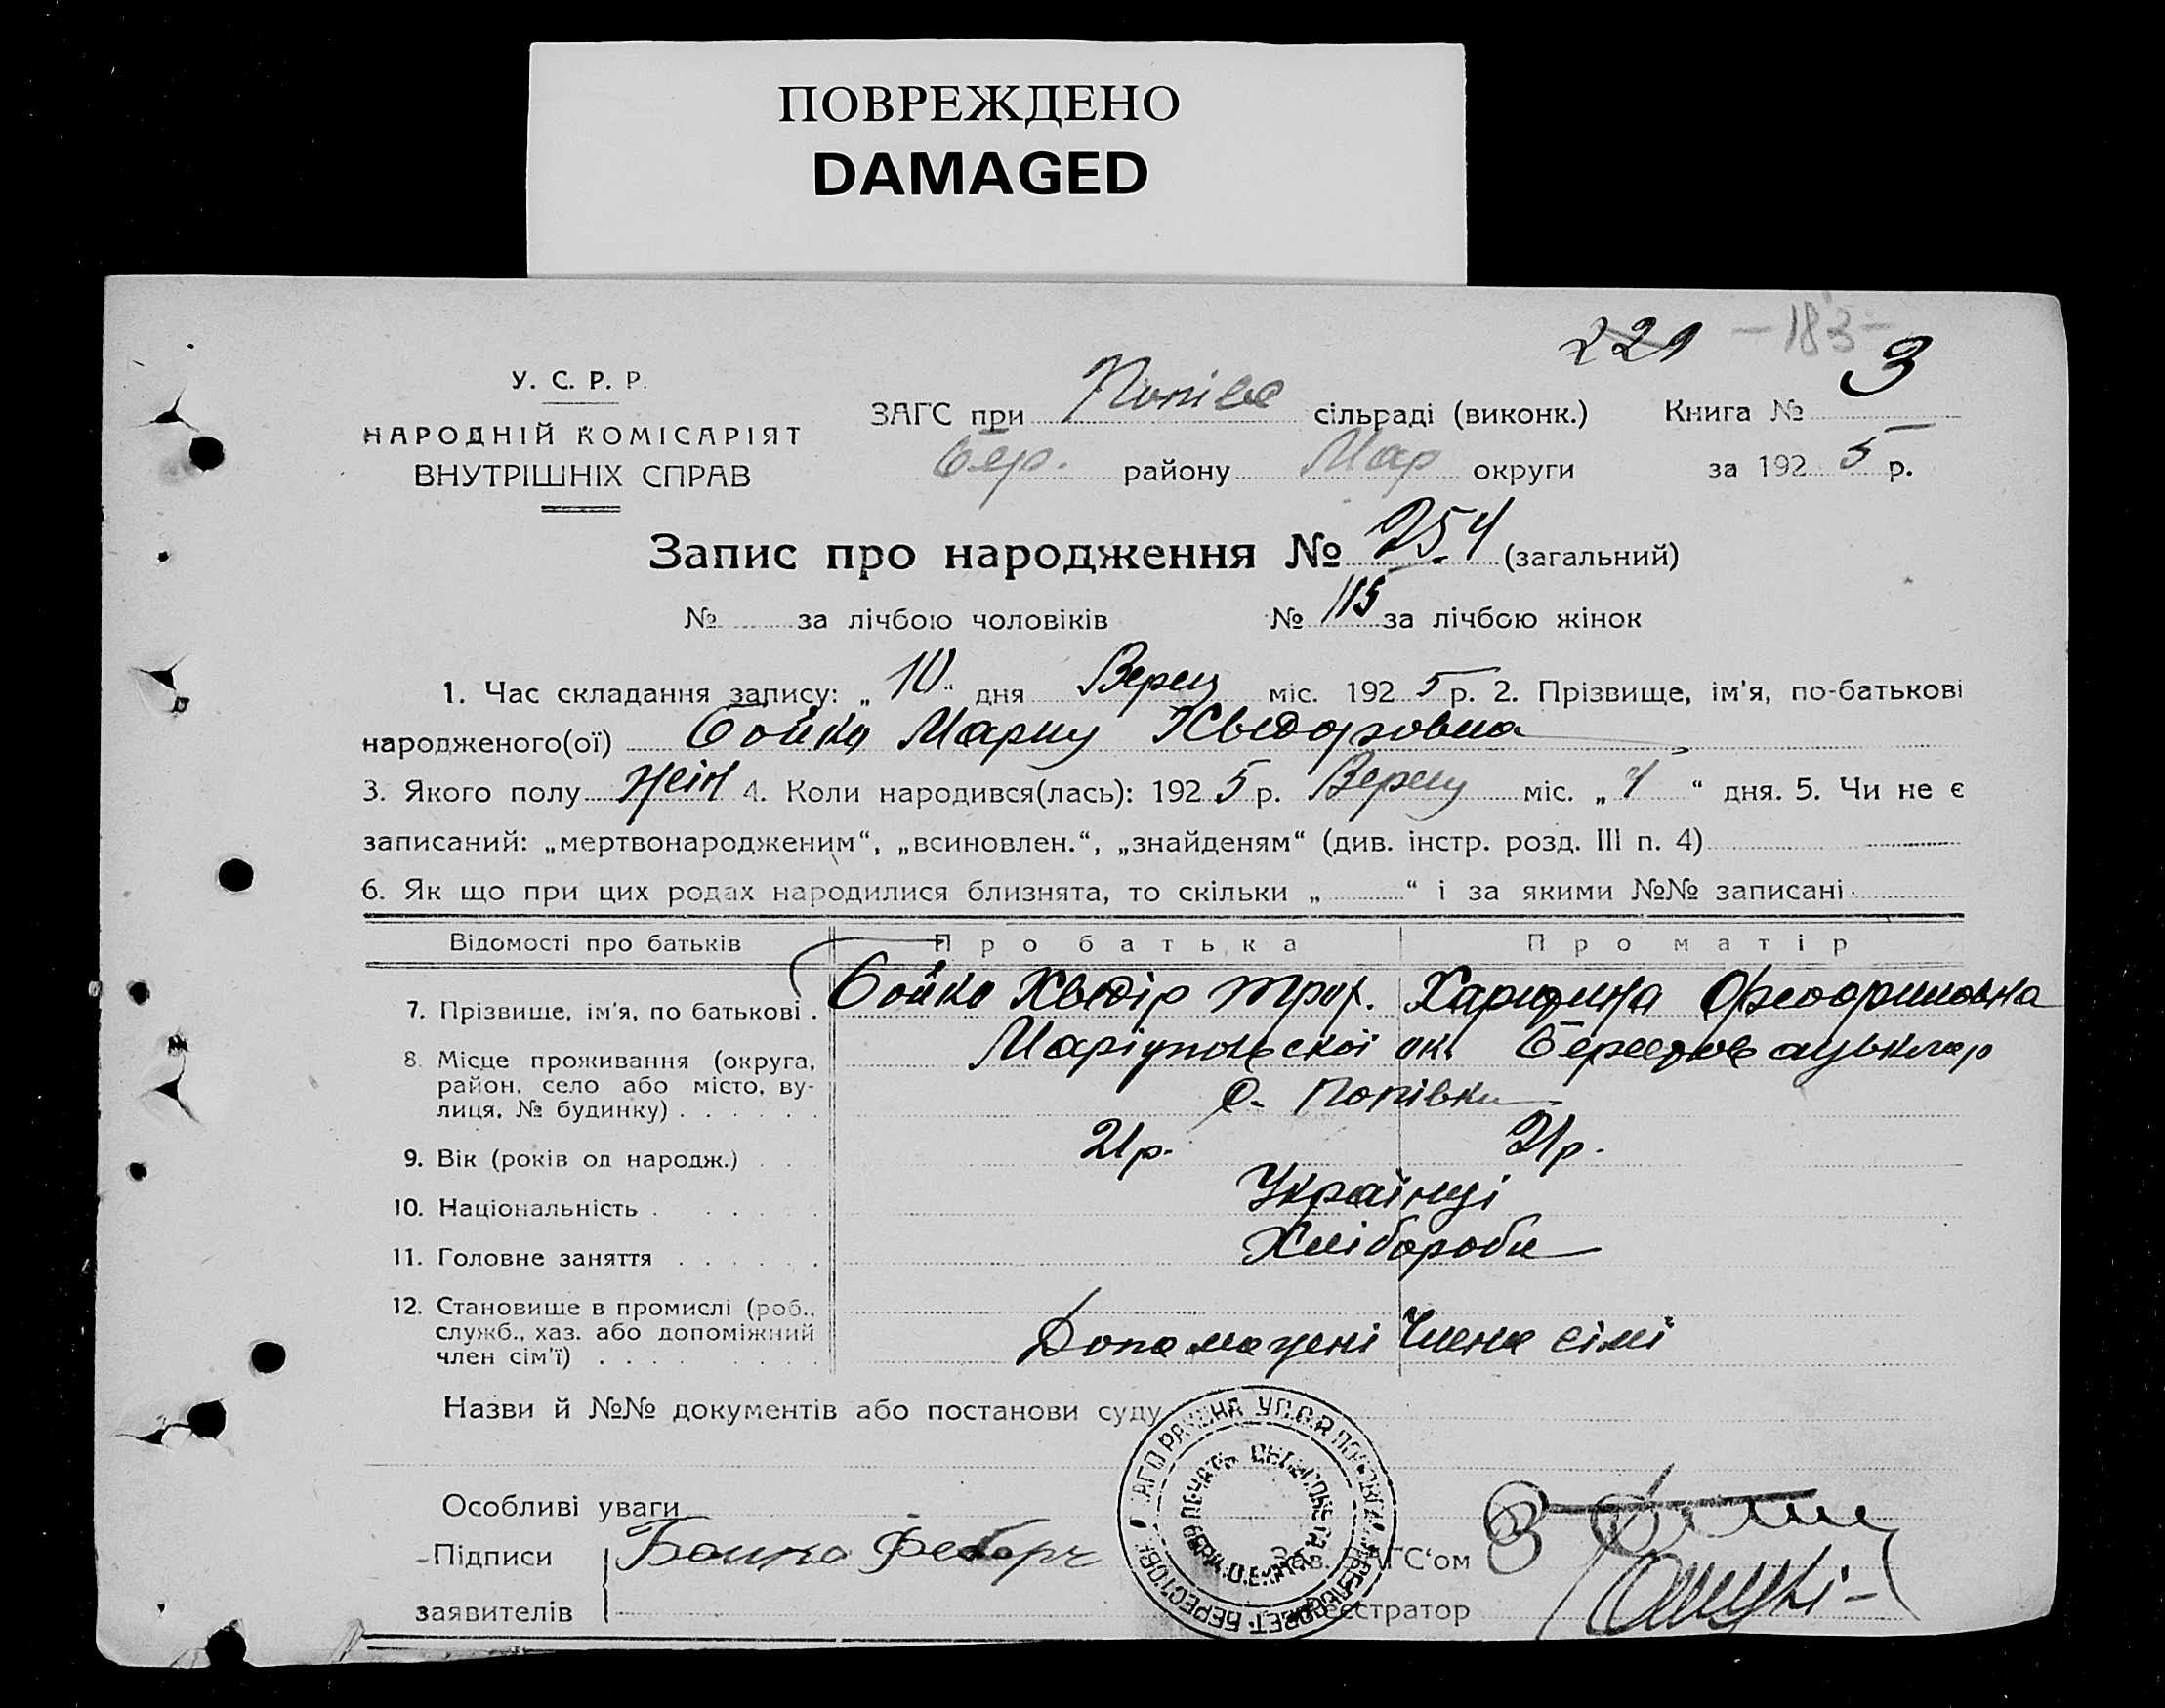 ПОВРЕЖДЕНО
DAMAGED
221 -183-
У. С. Р. Р.
НАРОДНІЙ КОМІСАРІЯТ
ВНУТРІШНІХ СПРАВ
ЗАГС при Попівс сільраді (виконк.) Книга № 3
Бер. району Мар округи за 1925 р.
Запис про народження № 254 (загальний)
№ за лічбою чоловіків № 115 за лічбою жінок
1. Час складання запису: „10“ дня Верец міс. 1925 р. 2. Прізвище, ім'я, по-батькові
народженого(ої) Бойко Марич Хведоровна
3. Якого полу жін 4. Коли народився(лась): 1925 р. Верец міс. „4“ дня. 5. Чи не є
записаний: „мертвонародженим“, „всиновлен.“, „знайденям“ (див. інстр. розд. III п. 4)
6. Як що при цих родах народилися близнята, то скільки „ “ і за якими №№ записані
Відомості про батьків Про батька Про матір
7. Прізвище, ім'я, по батькові . Бойко Хведір Троф. Харитина
8. Місце проживання (округа, Маріупольскої ок.
район, село або місто, ву-
лиця, № будинку) . . . . . . с. Попівки
9. Вік (років од народж.) . . 21р. 21р.
10. Національність . . . . . . Українці
11. Головне заняття . . . . . . Хлібороби
12. Становище в промислі (роб.,
служб., хаз. або допоміжний
член сім'ї) . . . . . . . . . Допомагені Члена сімі
Назви й №№ документів або постанови суду
Особливі уваги
Підписи Бойко Федорч Зав. ЗАГС‘ом
заявителів Реєстратор